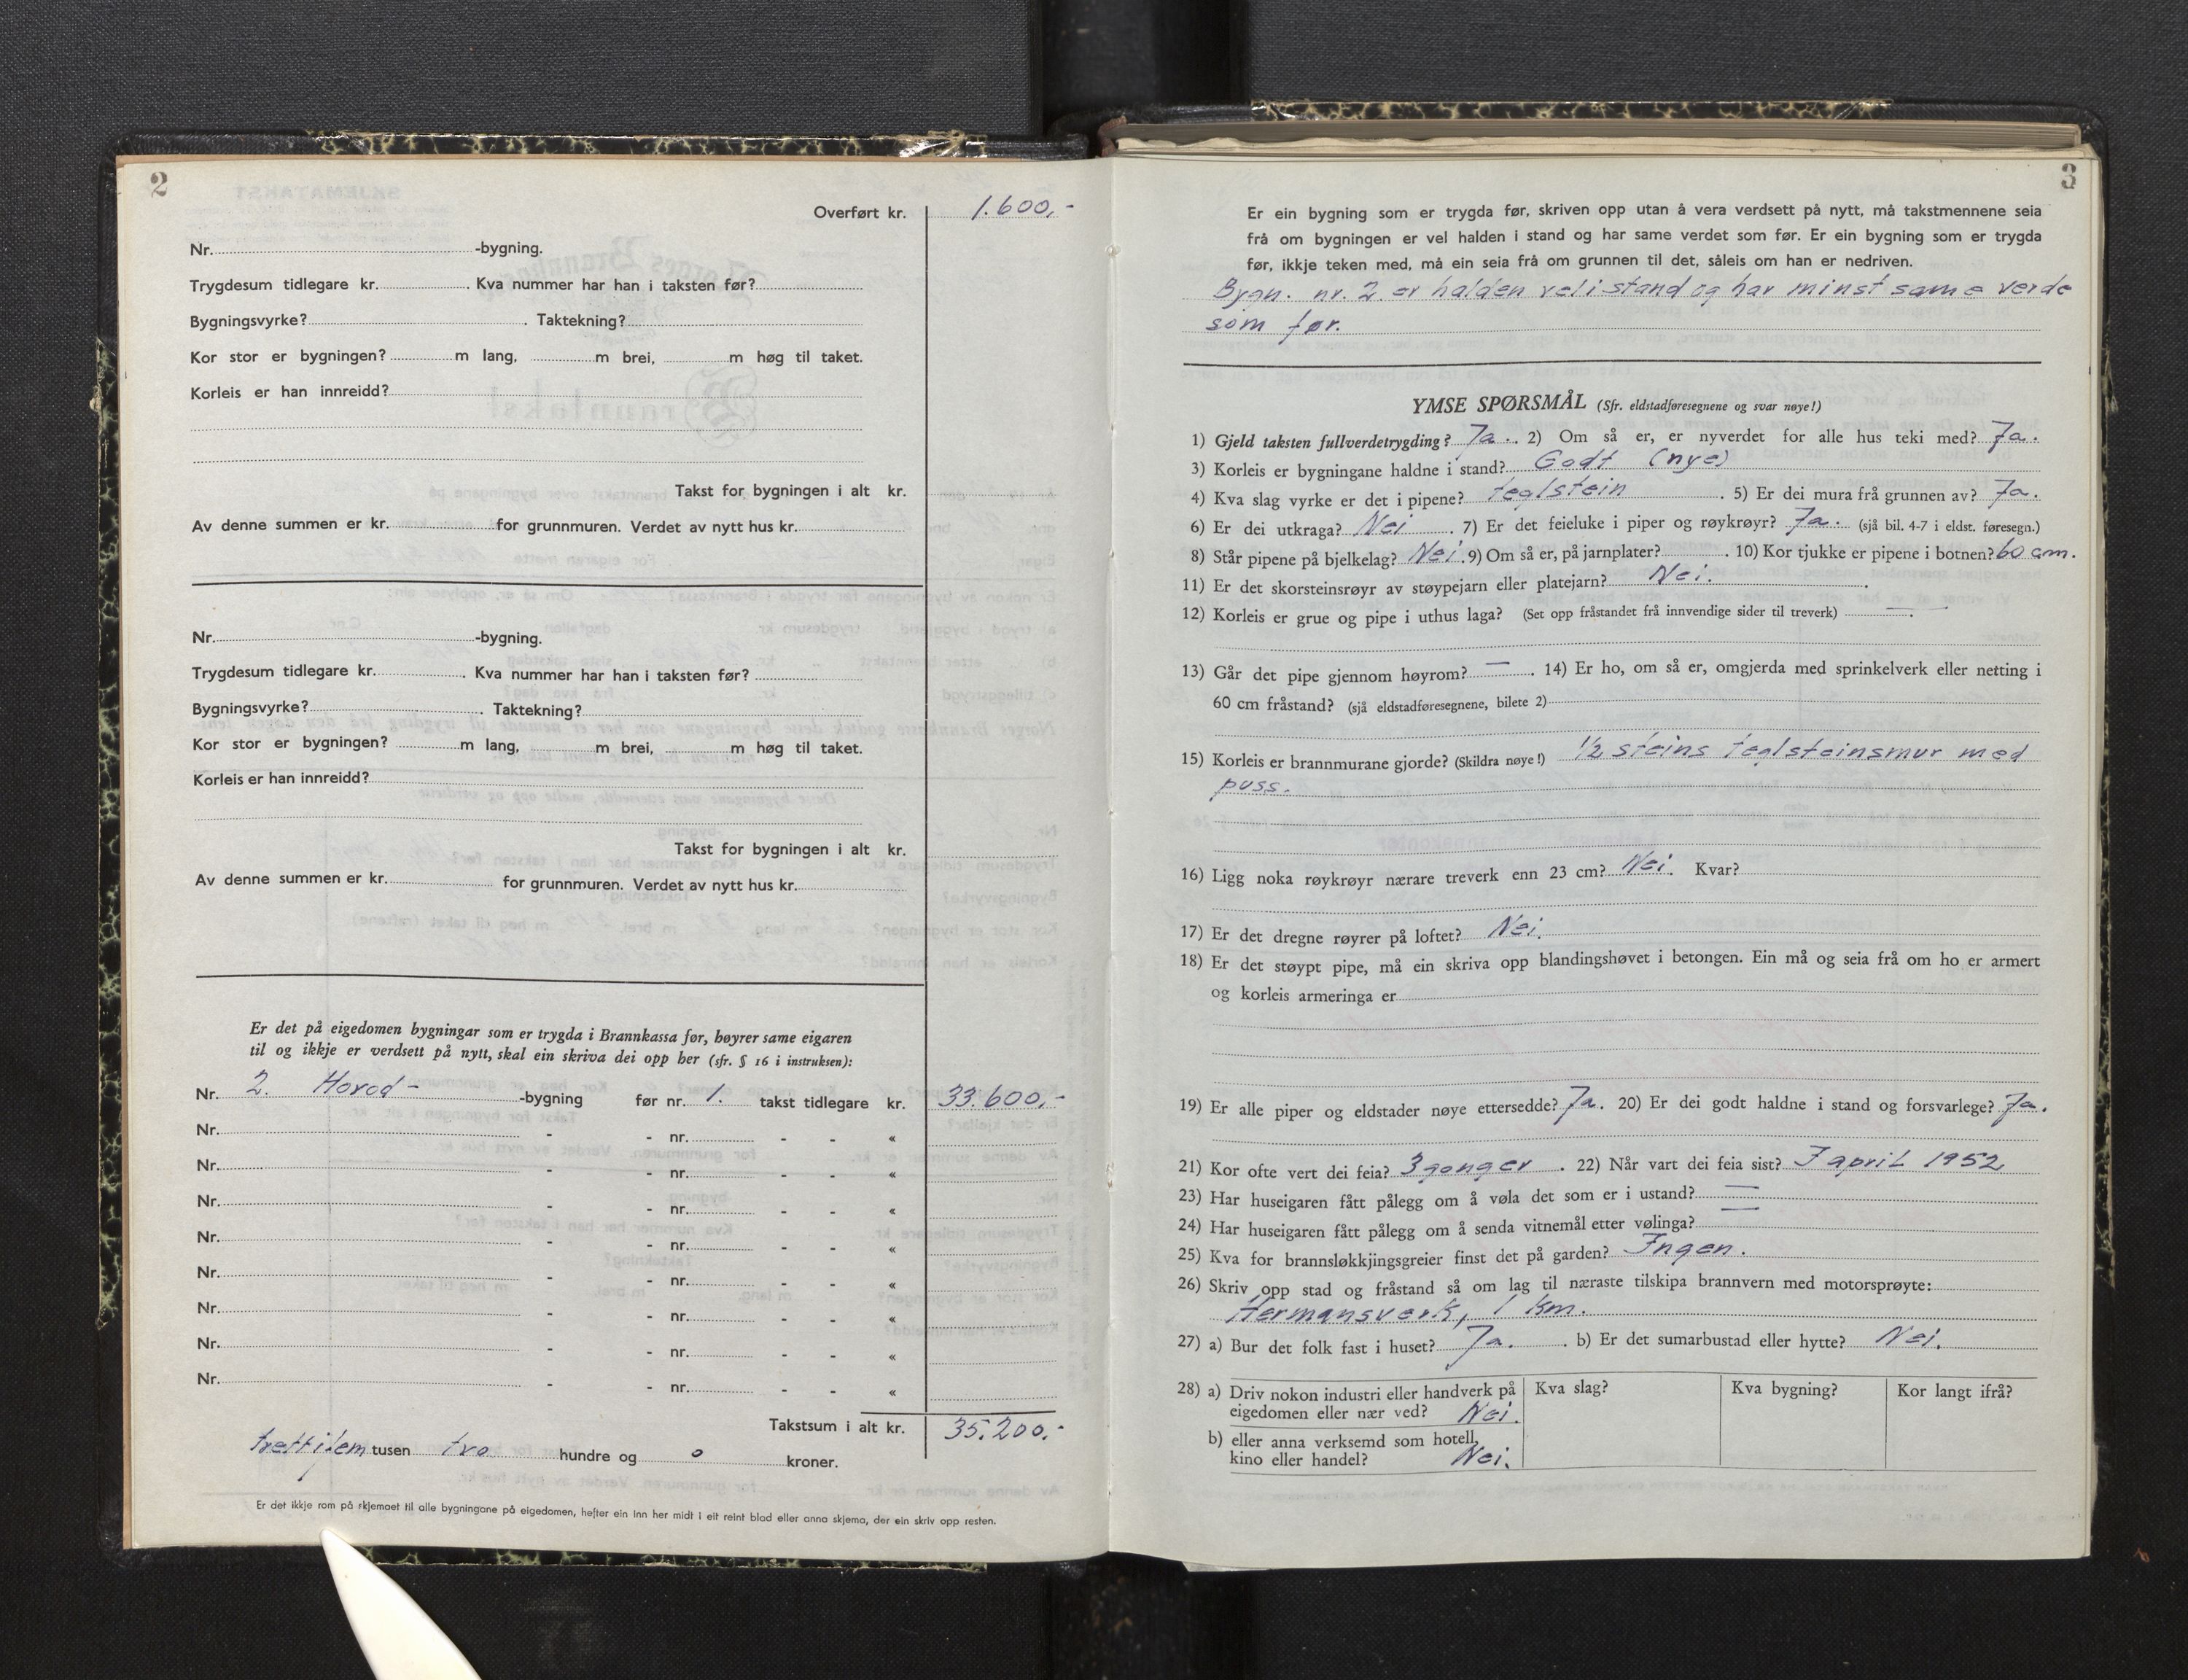 2
Overført kr. 1.600,-
Nr. -bygning.
Trygdesum tidlegare kr. . Kva nummer har han i taksten før?
Bygningsvyrke? . Taktekning?
Kor stor er bygningen? m lang, m brei, m høg til taket.
Korleis er han innreidd?
Takst for bygningen i alt kr.
Av denne summen er kr. for grunnmuren. Verdet av nytt hus kr.
Nr. -bygning.
Trygdesum tidlegare kr. . Kva nummer har han i taksten før?
Bygningsvyrke? . Taktekning?
Kor stor er bygningen? m lang, m brei, m høg til taket.
Korleis er han innreidd?
Takst for bygningen i alt kr.
Av denne summen er kr. for grunnmuren. Verdet av nytt hus kr.
Er det på eigedomen bygningar som er trygda i Brannkassa før, høyrer same eigaren
til og ikkje er verdsett på nytt, skal ein skriva dei opp her (sfr. § 16 i instruksen):
Nr. 2. Hovod- -bygning før nr. 1. takst tidlegare kr. 33.600,-
Nr. - - nr. - - «
Nr. - - nr. - - «
Nr. - - nr. - - «
Nr. - - nr. - - «
Nr. - - nr. - - «
Nr. - - nr. - - «
Nr. - - nr. - - «
Nr. - - nr. - - «
Takstsum i alt kr. 35.200.-
trettifem tusen tvo hundre og o kroner.
Er det ikkje rom på skjemaet til alle bygningane på eigedomen, hefter ein inn her midt i eit reint blad eller anna skjema, der ein skriv opp resten.
3
Er ein bygning som er trygda før, skriven opp utan å vera verdsett på nytt, må takstmennene seia
frå om bygningen er vel halden i stand og har same verdet som før. Er ein bygning som er trygda
før, ikkje teken med, må ein seia frå om grunnen til det, såleis om han er nedriven.
Bygn. nr. 2 er halden vel i stand og har minst same verde
som før.
YMSE SPØRSMÅL (Sfr. eldstadføresegnene og svar nøye!)
1) Gjeld taksten fullverdetrygding? Ja. . 2) Om så er, er nyverdet for alle hus teki med? Ja.
3) Korleis er bygningane haldne i stand? Godt (nye)
4) Kva slag vyrke er det i pipene? teglstein . 5) Er dei mura frå grunnen av? Ja.
6) Er dei utkraga? Nei . 7) Er det feieluke i piper og røykrøyr? Ja. (sjå bil. 4-7 i eldst. føresegn.)
8) Står pipene på bjelkelag? Nei . 9) Om så er, på jarnplater? . 10) Kor tjukke er pipene i botnen? 60 cm.
11) Er det skorsteinsrøyr av støypejarn eller platejarn? Nei. .
12) Korleis er grue og pipe i uthus laga? (Set opp fråstandet frå innvendige sider til treverk) — .
13) Går det pipe gjennom høyrom? — . 14) Er ho, om så er, omgjerda med sprinkelverk eller netting i
60 cm fråstand? (sjå eldstadføresegnene, bilete 2)
15) Korleis er brannmurane gjorde? (Skildra nøye!) 1/2 steins teglsteinsmur med
puss.
16) Ligg noka røykrøyr nærare treverk enn 23 cm? Nei. Kvar?
17) Er det dregne røyrer på loftet? Nei.
18) Er det støypt pipe, må ein skriva opp blandingshøvet i betongen. Ein må og seia frå om ho er armert
og korleis armeringa er
19) Er alle piper og eldstader nøye ettersedde? Ja. 20) Er dei godt haldne i stand og forsvarlege? Ja.
21) Kor ofte vert dei feia? 3 gonger . 22) Når vart dei feia sist? I april 1952
23) Har huseigaren fått pålegg om å vøla det som er i ustand? —
24) Har huseigaren fått pålegg om å senda vitnemål etter vølinga? —
25) Kva for brannsløkkjingsgreier finst det på garden? Ingen.
26) Skriv opp stad og fråstand så om lag til næraste tilskipa brannvern med motorsprøyte:
Hermansverk, 1 km.
27) a) Bur det folk fast i huset? Ja. . b) Er det sumarbustad eller hytte? Nei.
28) a) Driv nokon industri eller handverk på
eigedomen eller nær ved? Nei.
Kva slag? Kva bygning? Kor langt ifrå?
b) eller anna verksemd som hotell,
kino eller handel? Nei.